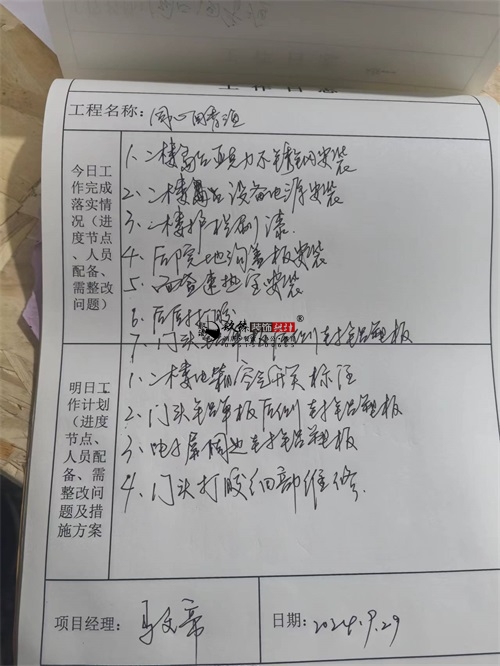 工作日志
工程名称: 同心田
今日工作完成落实情况(进度节点、人员配备、需整改问题)
1、二楼高台亚克力不锈钢安装
2、二楼高台设备电源安装
3、二楼护栏刷漆.
4、后院地沟盖板安装
5、安装
6、后厨打胶
7、门头铝单板后侧封铝塑板
明日工作计划(进度节点、人员配备、需整改问题及措施方案
1、二楼电箱空开开关标注
2、门头铝单板后侧封铝塑板
3、电子屏周边封铝塑板
4、门头打胶细部维修.
项目经理:
日期: 2024.9.29